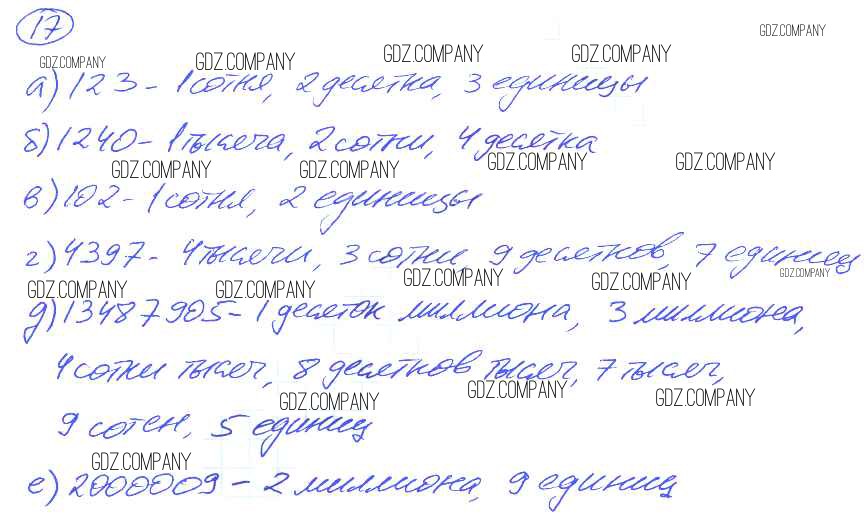 17
GDZ.COMPANY
GDZ.COMPANY GDZ.COMPANY GDZ.COMPANY GDZ.COMPANY
а) 123 - 1 сотня, 2 десятка, 3 единицы
б) 1240 - 1 тысяча, 2 сотни, 4 десятка
GDZ.COMPANY GDZ.COMPANY GDZ.COMPANY GDZ.COMPANY
в) 102 - 1 сотня, 2 единицы
г) 4397 - 4 тысячи, 3 сотни, 9 десятков, 7 единиц
GDZ.COMPANY GDZ.COMPANY GDZ.COMPANY GDZ.COMPANY GDZ.COMPANY
д) 13487905 - 1 десяток миллиона, 3 миллиона,
4 сотни тысяч, 8 десятков тысяч, 7 тысяч,
GDZ.COMPANY GDZ.COMPANY GDZ.COMPANY
9 сотен, 5 единиц
GDZ.COMPANY
е) 2000009 - 2 миллиона, 9 единиц